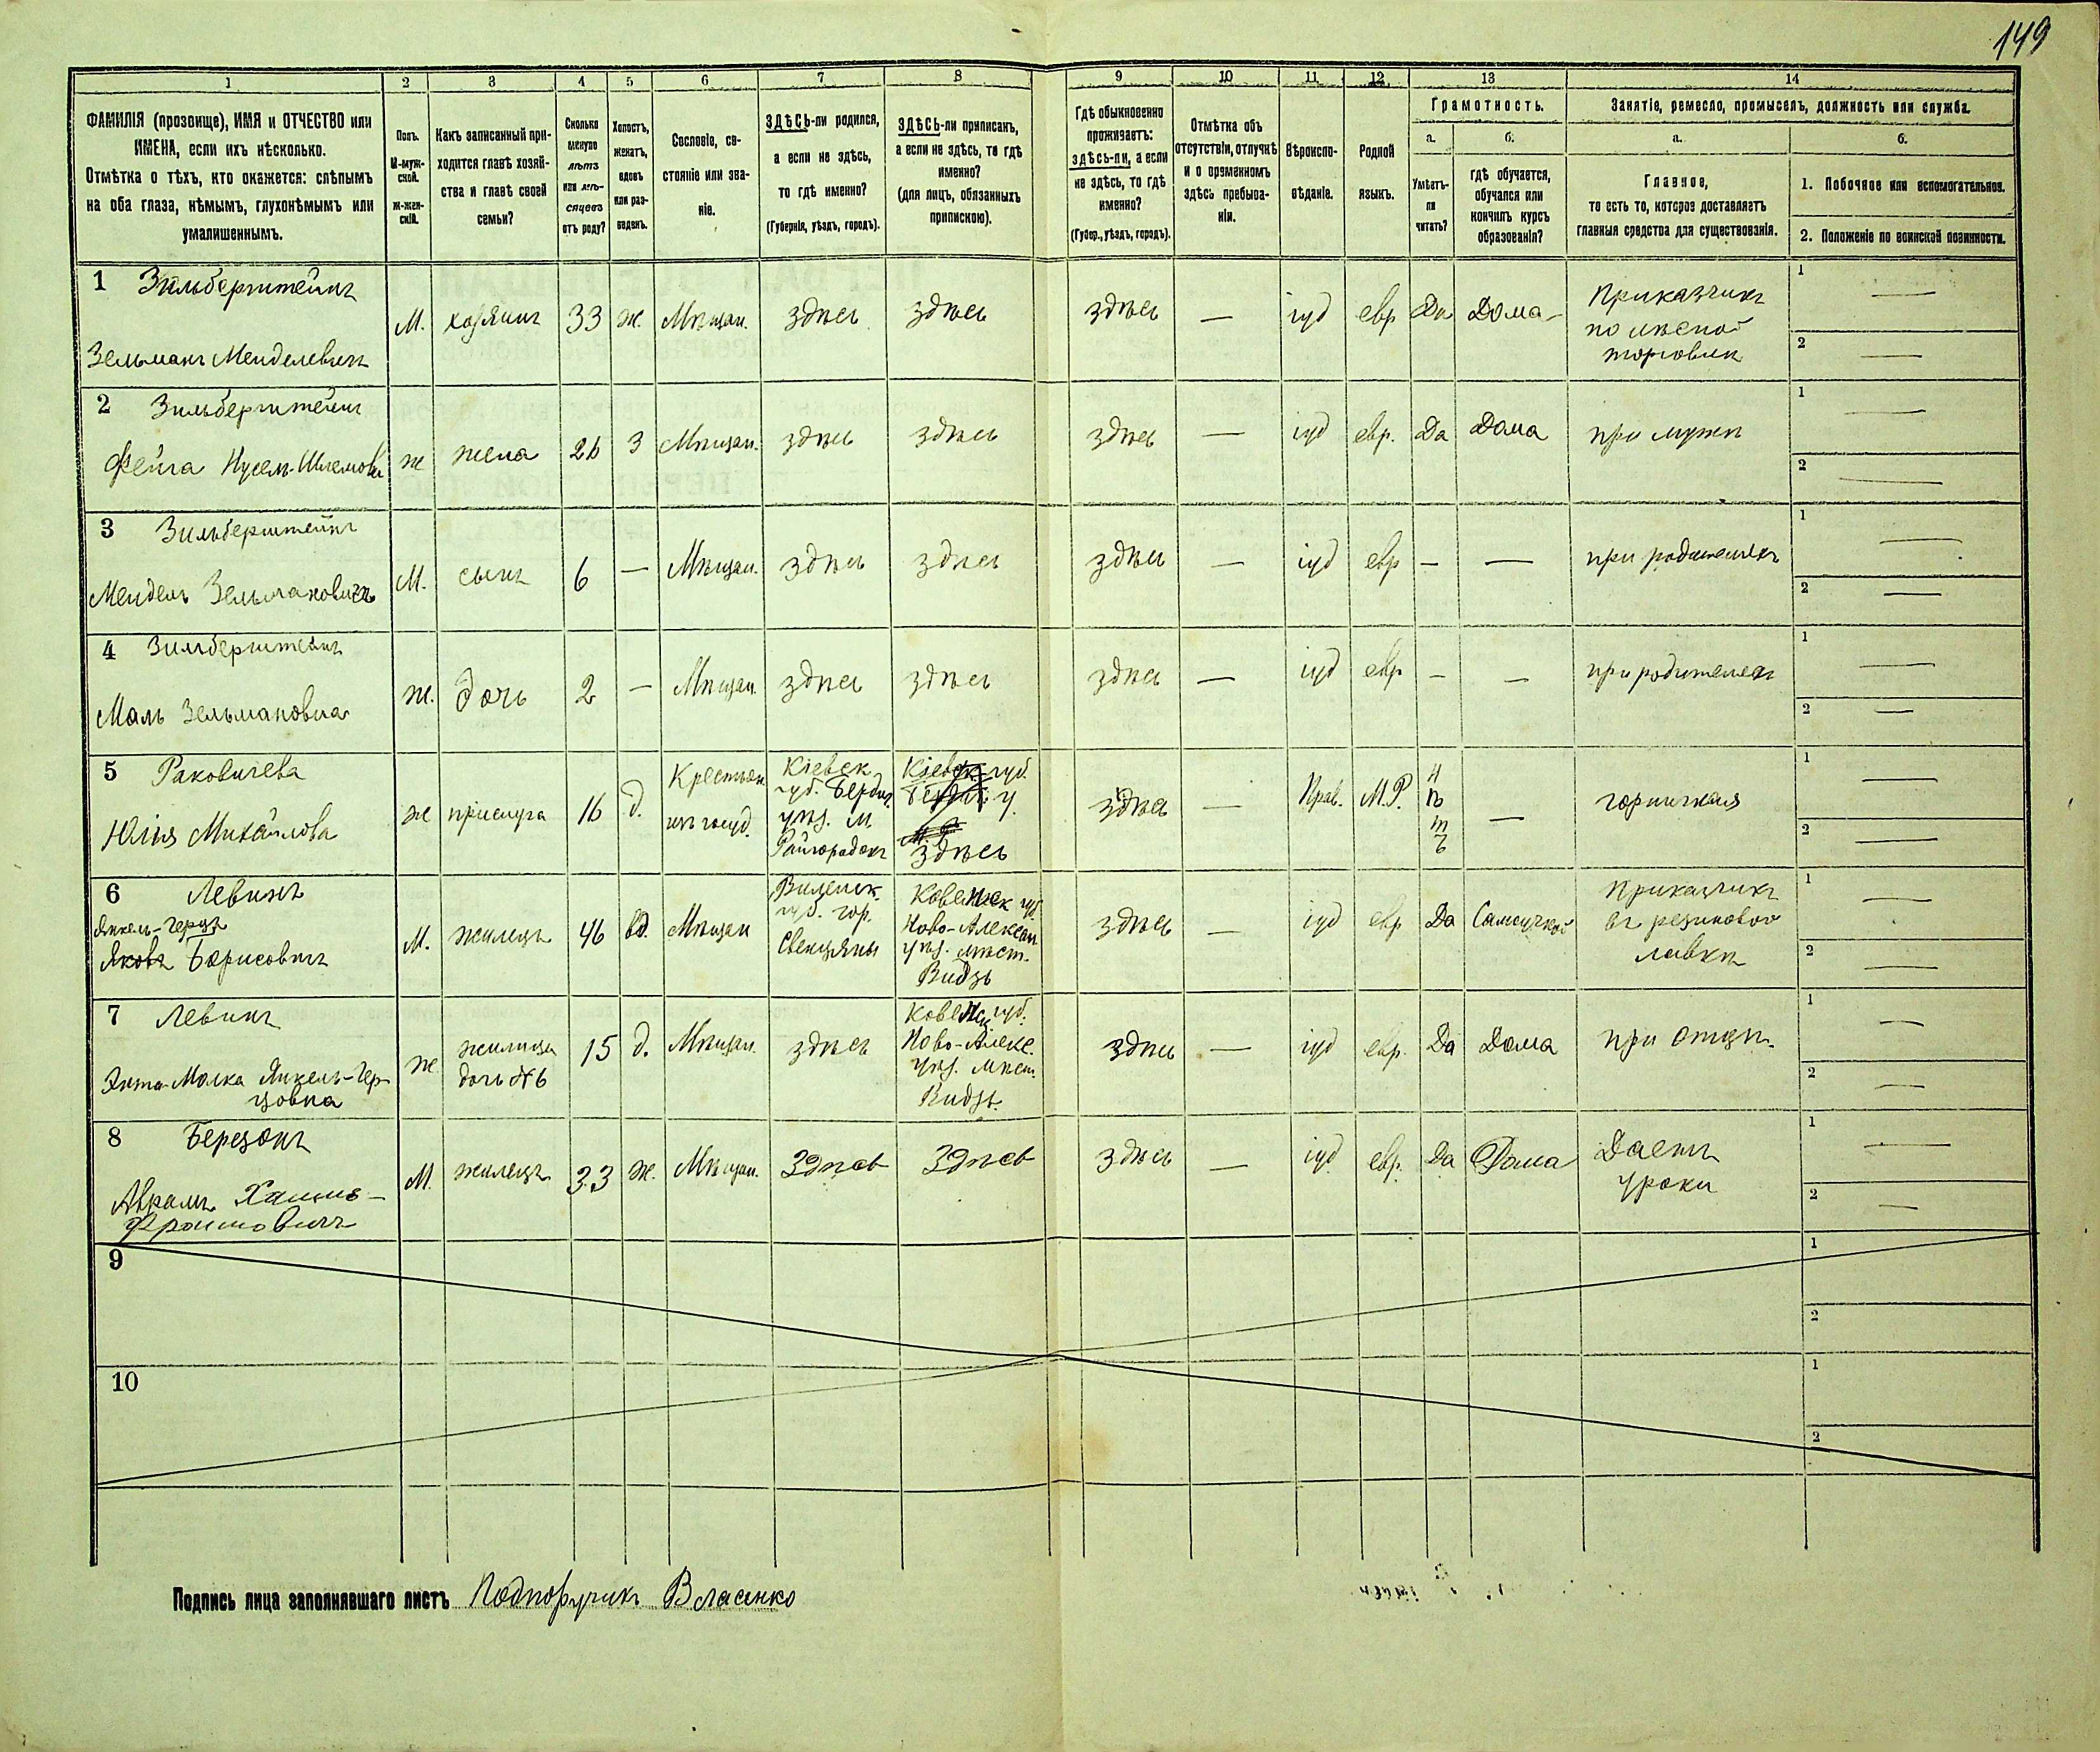 149
1 2 3 4 5 6 7 8 9 10 11 12 13 14
ФАМИЛІЯ (прозвище), ИМЯ и ОТЧЕСТВО или
ИМЕНА, если ихъ нѣсколько.
Отмѣтка о тѣхъ, кто окажется: слѣпымъ
на оба глаза, нѣмымъ, глухонѣмымъ или
умалишеннымъ.
Полъ.
М-муж-
ской.
Ж-жен-
скій.
Какъ записанный при-
ходится главѣ хозяй-
ства и главѣ своей
семьи?
Сколько
минуло
лѣтъ
или мѣ-
сяцевъ
отъ роду?
Холостъ,
женатъ,
вдовъ
или раз-
веденъ.
Сословіе, со-
стояніе или зва-
ніе.
ЗДѢСЬ-ли родился,
а если не здѣсь,
то гдѣ именно?
(Губернія, уѣздъ, городъ).
ЗДѢСЬ-ли приписанъ,
а если не здѣсь, то гдѣ
именно?
(для лицъ, обязанныхъ
припискою).
Гдѣ обыкновенно
проживаетъ:
здѣсь-ли, а если
не здѣсь, то гдѣ
именно?
(Губер., уѣздъ, городъ).
Отмѣтка объ
отсутствіи, отлучкѣ
и о временномъ
здѣсь пребыва-
ніи.
Вѣроиспо-
вѣданіе.
Родной
языкъ.
Грамотность.
а.
Умѣетъ-
ли
читать?
б.
гдѣ обучается,
обучался или
кончилъ курсъ
образованія?
Занятіе, ремесло, промыселъ, должность или служба.
а.
Главное,
то есть то, которое доставляетъ
главныя средства для существованія.
б.
1. Побочное или вспомогательное.
2. Положеніе по воинской повинности.
1 Зильберштейнъ
Зельманъ Менделевичъ
М. хозяинъ 33 ж. Мѣщан. здѣсь здѣсь здѣсь — іуд евр Да Дома
Приказчикъ
по лѣсной
торговлѣ
1 —
2 —
2 Зильберштейнъ
Фейга Нусем-Шлемовн
ж жена 26 З Мѣщан. здѣсь здѣсь здѣсь — іуд евр. Да Дома при мужѣ
1 —
2 —
3 Зильберштейнъ
Мендель Зельмановичъ
М. сынъ 6 — Мѣщан. здѣсь здѣсь здѣсь — іуд евр — — при родителяхъ
1 —
2 —
4 Зильберштейнъ
Маль Зельмановна
ж. дочь 2 — Мѣщан. здѣсь здѣсь здѣсь — іуд евр — — при родителяхъ
1 —
2 —
5 Раковичева
Юлія Михайлова
ж прислуга 16 д.
Крестьян.
изъ госуд.
Кіевск
губ. Бердич.
уѣз. м.
Райгородокъ
Кіевск. губ.
Бердич. у.
здѣсь
здѣсь — Прав. М.Р.
Н
ѣ
т
ъ
— горничная
1 —
2 —
6 Левинъ
Янкель-Герцъ
Яковъ Борисовичъ
М. жилецъ 46 вд. Мѣщан
Виленск.
губ. гор.
Свенцяны
Ковенск губ.
Ново-Алексан.
уѣз. мѣст.
Видзь
здѣсь — іуд евр Да Самоучкой
Приказчикъ
въ резиновой
лавкѣ
1 —
2 —
7 Левинъ
Энта-Малка Янкель-Гер-
цовна
ж
жилица
дочь №6
15 д. Мѣщан. здѣсь
Ковенск. губ.
Ново-Алекс.
уѣз. мѣст.
Видзь.
здѣсь — іуд евр. Да Дома при отцѣ.
1 —
2 —
8 Березонъ
Абрамъ Хаимъ-
Фроимовичъ
М. жилецъ 33 ж. Мѣщан. Здѣсь Здѣсь здѣсь — іуд евр. Да Дома
Даетъ
уроки
1 —
2 —
9
1
2
10
1
2
Подпись лица заполнявшаго листъ Подпоручикъ Власенко